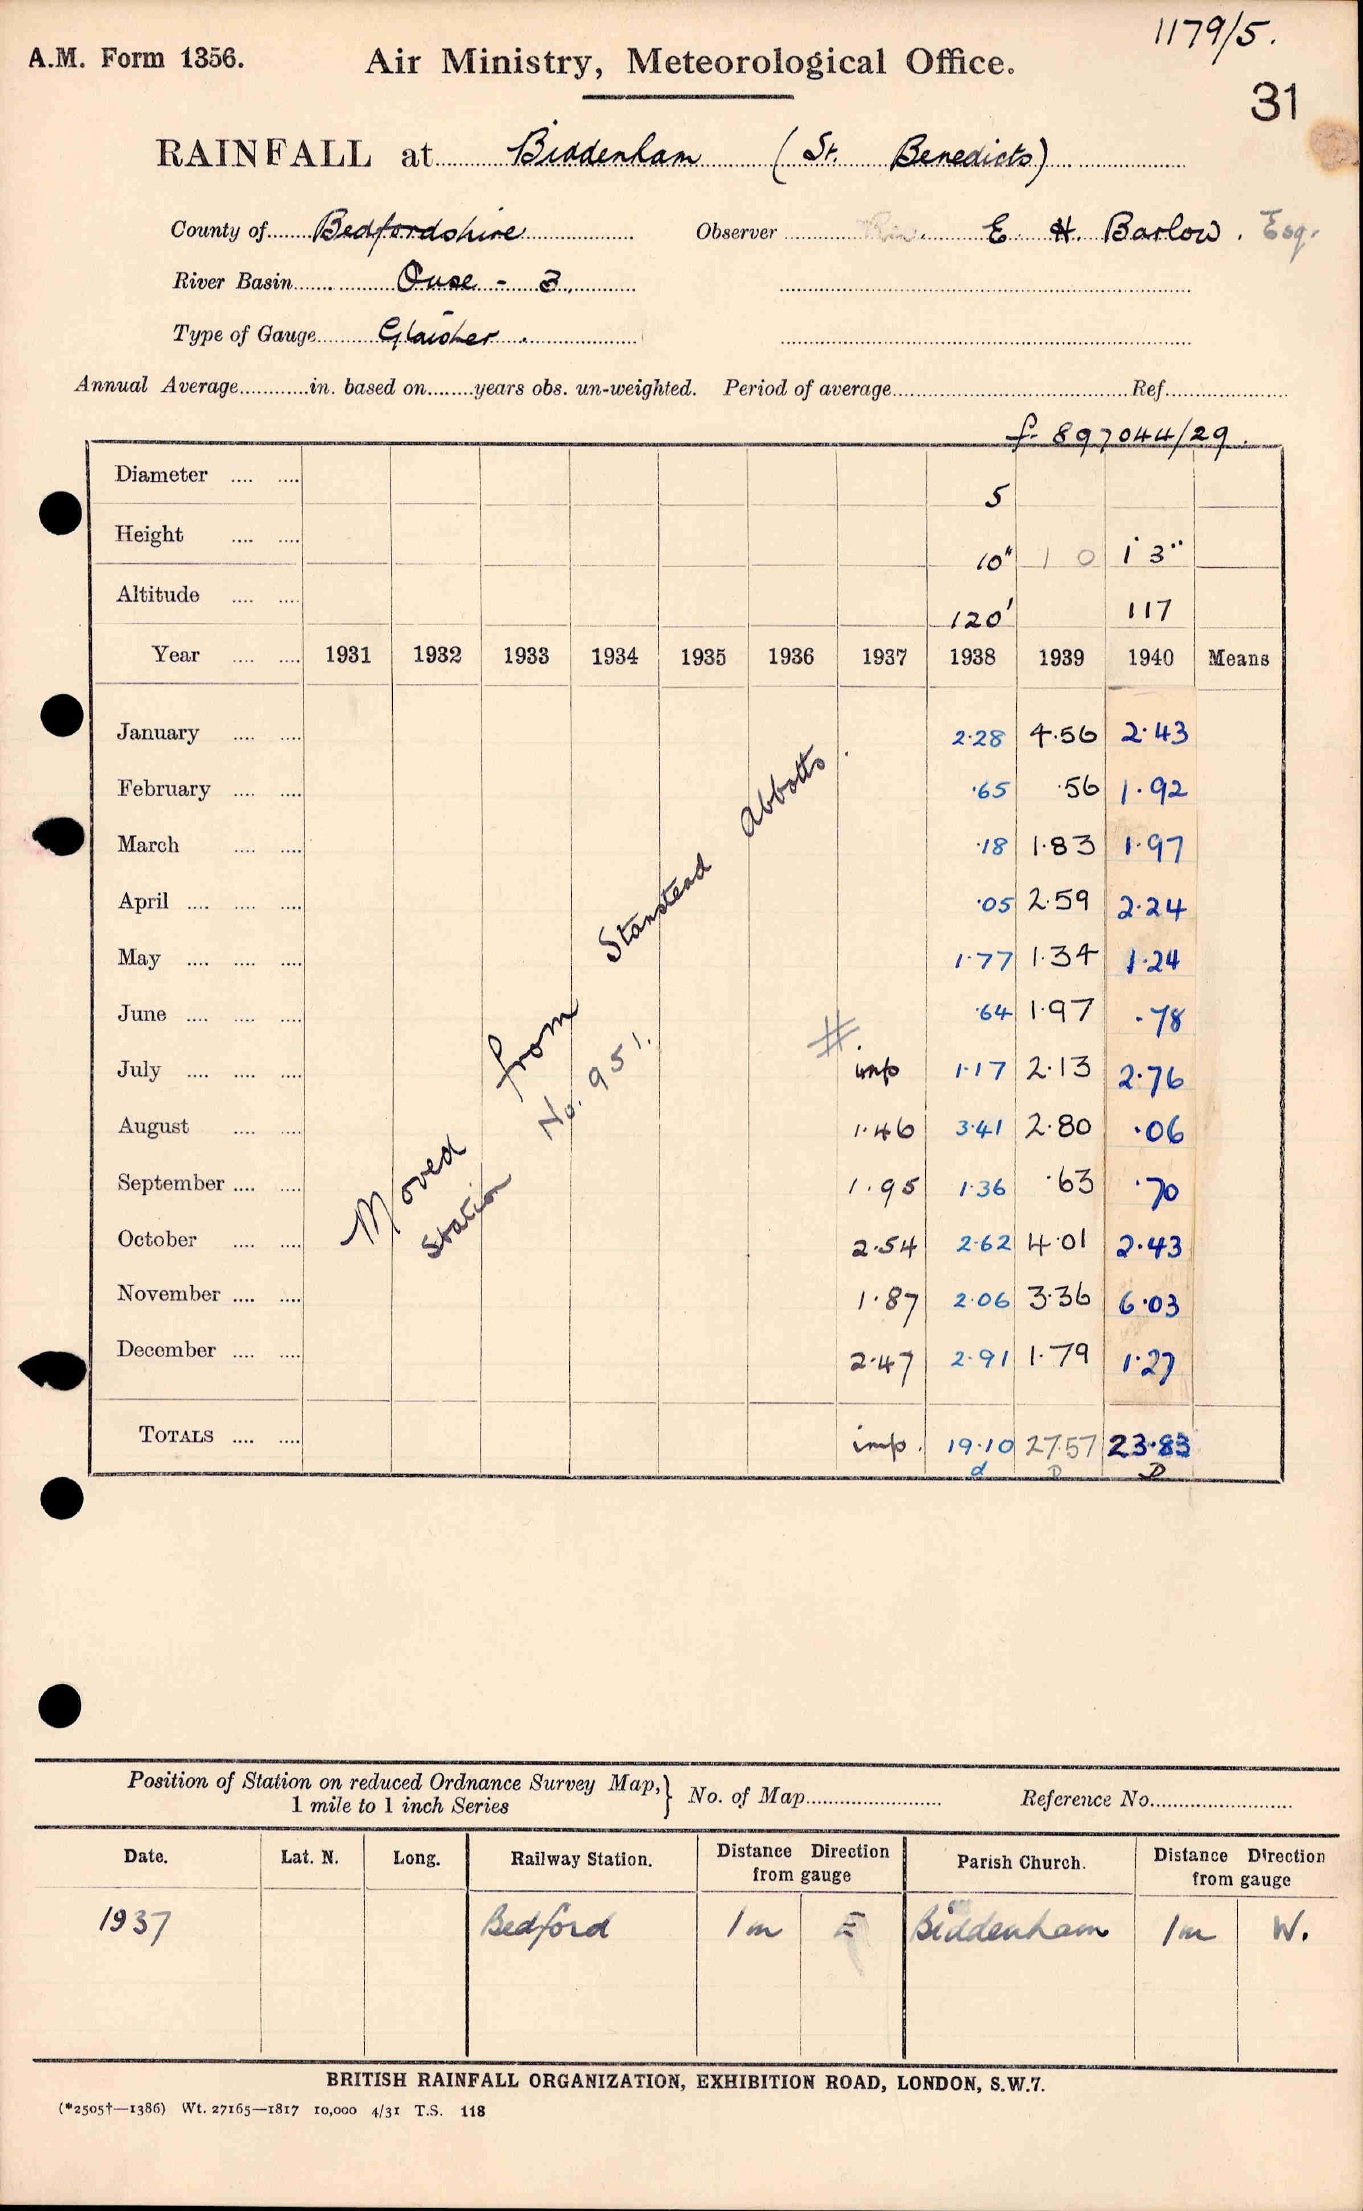 1179/5.
A.M. Form 1356. Air Ministry, Meteorological Office.
31
RAINFALL at Biddenham (St. Benedicts)
County of Bedfordshire Observer E. H. Barlow. Esq.
River Basin Ouse - 3.
Type of Gauge Glaisher.
Annual Average............in. based on........years obs. un-weighted. Period of average........................................Ref.....................
f. 897044/29.
Diameter .... .... 5
Height .... .... 10" 1 0 1' 3"
Altitude .... .... 120' 117
Year .... .... 1931 1932 1933 1934 1935 1936 1937 1938 1939 1940 Means
January .... .... 2.28 4.56 2.43
February .... .... .65 .56 1.92
March .... .... .18 1.83 1.97
April .... .... .... .05 2.59 2.24
May .... .... .... 1.77 1.34 1.24
June .... .... .... .64 1.97 .78
July .... .... .... imp 1.17 2.13 2.76
August .... .... 1.46 3.41 2.80 .06
September .... .... 1.95 1.36 .63 .70
October .... .... 2.54 2.62 4.01 2.43
November .... .... 1.87 2.06 3.36 6.03
December .... .... 2.47 2.91 1.79 1.27
TOTALS .... .... imp. 19.10 27.57 23.83
d D D
Moved from Stanstead Abbotts.
Station No. 951.
#
Position of Station on reduced Ordnance Survey Map,} No. of Map........................ Reference No.........................
1 mile to 1 inch Series
Date. Lat. N. Long. Railway Station. Distance Direction Parish Church. Distance Direction
from gauge from gauge
1937 Bedford 1m E Biddenham 1m W.
BRITISH RAINFALL ORGANIZATION, EXHIBITION ROAD, LONDON, S.W.7.
(*2505†—1386) Wt. 27165—1817 10,000 4/31 T.S. 118